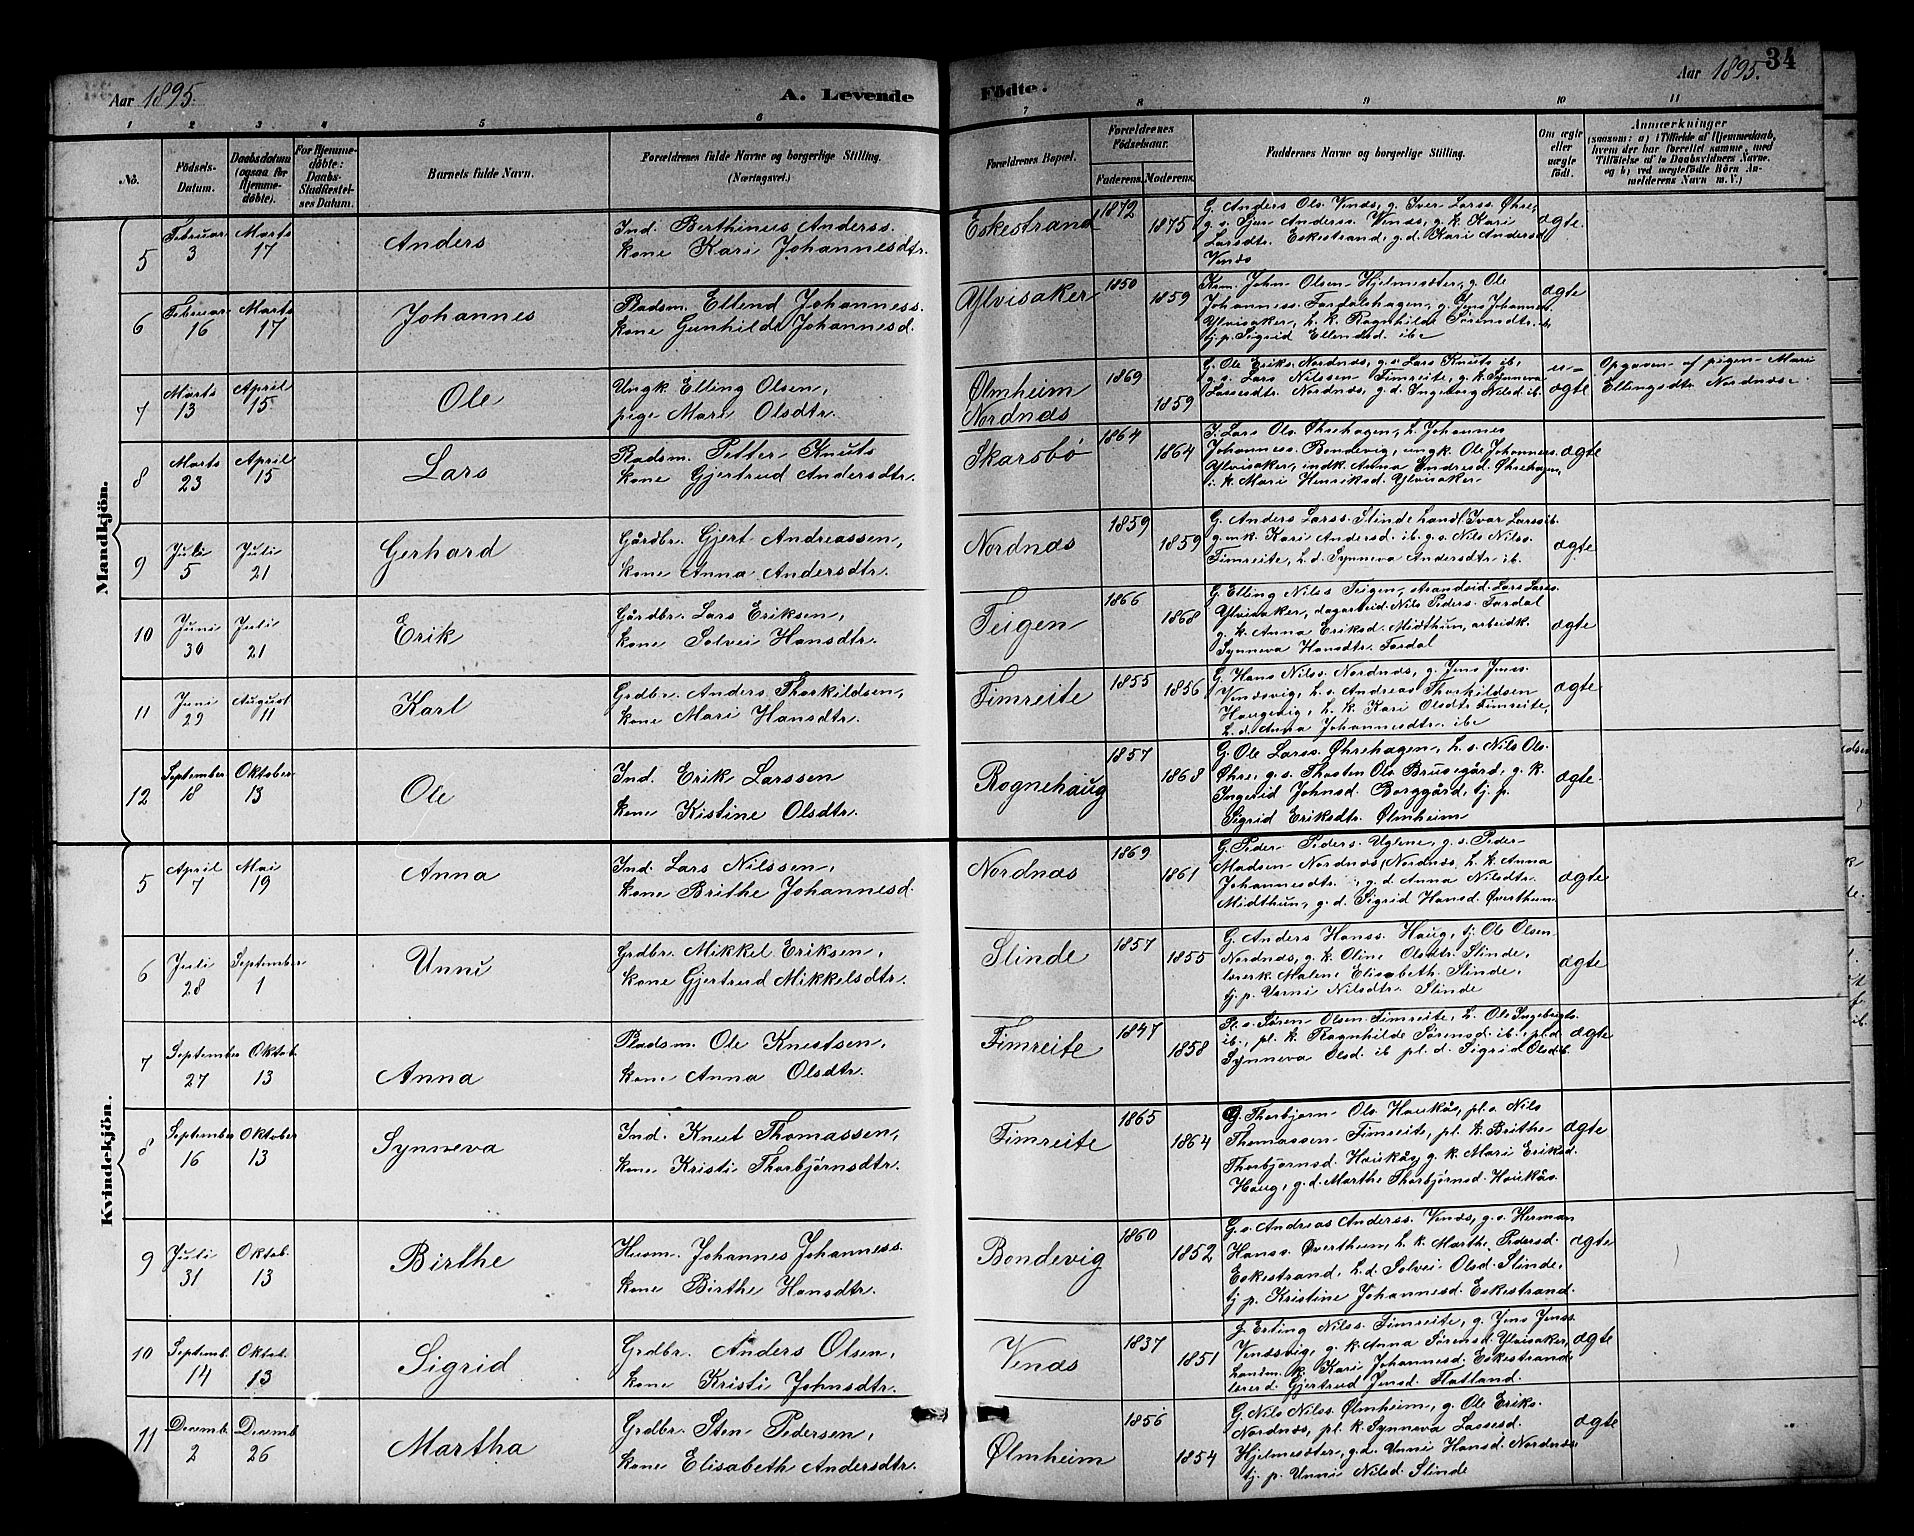 34
Aar 1895. A. Levende Födte. Aar 1895.
1 2 3 4 5 6 7 8 9 10 11
No. Födsels-Datum. Daabsdatum (ogsaa for Hjemme-döbte). For Hjemme-döbte: Daabs-Stadfæstel-ses Datum. Barnets fulde Navn. Forældrenes fulde Navne og borgerlige Stilling. (Næringsvei.) Forældrenes Bopæl. Forældrenes Födselsaar. Faderens. Moderens. Faddernes Navne og borgerlige Stilling. Om ægte eller uægte födt. Anmærkninger (saasom: a) i Tilfælde af Hjemmedaab, hvem der har forrettet samme, med Tilföielse af to Daabsvidners Navne, og b) ved uægtefödte Börn Anmelderens Navn m. V.)
Mandkjön.
5 Februar 3 Marts 17 Anders
Ind. Berthinus Anderss.
kone Kari Johannesdtr.
Eskestrand 1872 1875
G. Anders Ols. Venæs, g. Iver Larss. Øhre,
g. s. Sjur Anderss. Venæs, g. k. Kari
Larsdtr. Eskestrand, g. d. Kari Andersd.
Venæs
ægte.
6 Februar 16 Marts 17 Johannes
Pladsm. Ellend Johanness.
kone Gunhilde Johannesd.
Ylvisaker 1850 1859
Kom. John Olsen Hjelmesæter, g. Ole
Johanness. Fardalehagen, g. Jens Johannes.
Ylvisaker, h. k. Ragnhilde Sørensdtr. ib
tj. p. Sigrid Ellendsd. ibc
ægte
7 Marts 13 April 15 Ole
Ungk. Elling Olsen,
pige Mari Olsdtr.
Ølmheim
Nordnæs
1869 1859
G. Ole Eriks. Nordnæs, g. s. Lars Knuts. ib,
g. s. Lars Nilssen Fimreite, g. k. Synneva
Lassesdtr. Nordnæs, g. d. Ingeborg Nilsd. ib.
u-
ægte
Opgaven af pigen Mari
Ellingsdtr Nordnæs
8 Marts 23 April 15 Lars
Pladsm. Petter Knuts
kone Gjertrud Andersdtr.
Skarsbø 1864 1864
I. Lars Ols. Øhrehagen, h. Johannes
Johanness. Bondevig, ungk. Ole Johanness.
Ylvisaker, indk. Anna Endresd. Øhrehagen,
i. k. Mari Henriksd. Ylvisaker
ægte
9 Juli 5 Juli 21 Gerhard
Gårdbr. Gjert Andreassen,
kone Anna Andersdtr.
Nordnæs 1859 1859
G. Anders Larss. Slinde Landh. Ivar Larss ib.
g. mk. Kari Andersd. ib. g. s. Nils Nilss.
Fimreite, h. d. Synneva Andersdtr ib.
ægte
10 Juni 30 Juli 21 Erik
Gårdbr. Lars Eriksen,
kone Solvei Hansdtr.
Teigen 1866 1868
G. Elling Nilss Teigen, strandsid. Lars Larss.
Ylvisaker, dagarbeid. Nils Peders. Fardal
g. k. Anna Eriksd. Midthun, arbeidk.
Synneva Hansdtr. Fardal
ægte
11 Juni 29 August 11 Karl
Grdbr. Anders Thorkildsen,
kone Mari Hansdtr.
Fimreite 1855 1856
G. Hans Nilss. Nordnæs, g. Jens Jenss.
Venæsvig, h. s. Andreas Thorkildsen
Haugevig, h. k. Kari Olsdtr. Fimreite,
h. d. Anna Johannesdtr. ibc
ægte
12 September 18 Oktober 13 Ole
Ind. Erik Larssen
kone Kistine Olsdtr.
Rognehaug 1857 1868
G. Ole Larss. Øhrehagen, h. s. Nils Ols.
Øhre, g. s. Thosten Ols. Brusegård, g. k.
Ingerid Johnsd. Borggård, tj. p.
Sigrid Eriksdtr. Ølmheim
ægte.
Kvindekjön.
5 April 7 Mai 19 Anna
Ind. Lars Nilssen,
kone Brithe Johannesd.
Nordnæs 1869 1861
G. Peder Peders. Uglene, g. s. Peder
Madsen Nordnæs, Nordnæs, h. k. Anna
Johannesdtr. g. d. Anna Nilsdtr.
Midthun, g. d. Sigrid Hansd. Øverthun
ægte
6 Juli 28 September 1 Unni
Grdbr. Mikkel Eriksen,
kone Gjertrud Mikkelsdtr.
Slinde 1857 1855
G. Anders Hanss. Haug, tj. Ole Olsen
Nordnæs, g. k. Oline Olsdtr. Slinde,
lærerk. Malene Elisabeth Slinde,
tj. p. Unni Nilsdtr. Slinde
ægte
7 September 27 Oktob. 13 Anna
Pladsm. Ole Knutsen,
kone Anna Olsdtr.
Fimreite 1847 1858
Pl. s. Søren Olsen Fimreite, h. Ole Ingebrigts.
ib., pl. k. Ragnhilde Sørensd. ib., pl. d.
Synneva Olsd. ib pl. d. Sigrid Olsd ib.
ægte
8 September 16 Oktober 13 Synneva
Ind. Knut Thomassen,
kone Kristi Thorbjörnsdtr.
Fimreite 1865 1864
G. Thorbjørn Ols. Haukås, pl. s. Nils
Thomassen Fimreite, pl. k. Brithe
Thorbjørnsd. Haukås, g. k. Mari Eriksd.
Haug, g. d. Marthe Thorbjørnsd. Haukås.
ægte
9 Juli 31 Oktob. 13 Birthe
Husm. Johannes Johanness.
kone Birthe Hansdtr.
Bondevig 1860 1852
G. s. Andreas Anderss. Venæs, g. s. Herman
Hanss. Øverthun, h. k. Marthe Pedersd.
Eskestrand, h. d. Solvei Olsd. Slinde,
tj p. Kristine Johannesd. Eskestrand
ægte
10 Septemb. 14 Oktob. 13 Sigrid
Grdbr. Anders Olsen,
kone Kristi Johnsdtr.
Venæs 1837 1851
G. Erting Nilss. Fimreite, g. Jens Jenss.
Venæsvig, g. k. Anna Sørensd. Ylvisaker,
Landm. k. Kari Johannesd. Eskestrand
lærerd. Gjertrud Jensd. Flatland
ægte
11 Decemb. 2 Decemb. 26 Martha
Grdbr. Sten Pedersen,
kone Elisabeth Andersdtr.
Ølmheim 1856 1854
G. Nils Nilss. Ølmheim, g. Ole Eriks.
Nordnæs, pl. k. Synneva Lassesd.
Hjelmesæter, g. d. Unni Hansd. Nordnæs,
tj. p. Unni Nilsd. Slinde
ægte